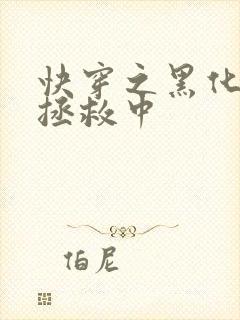 快穿之黑化
拯救中
伯尼